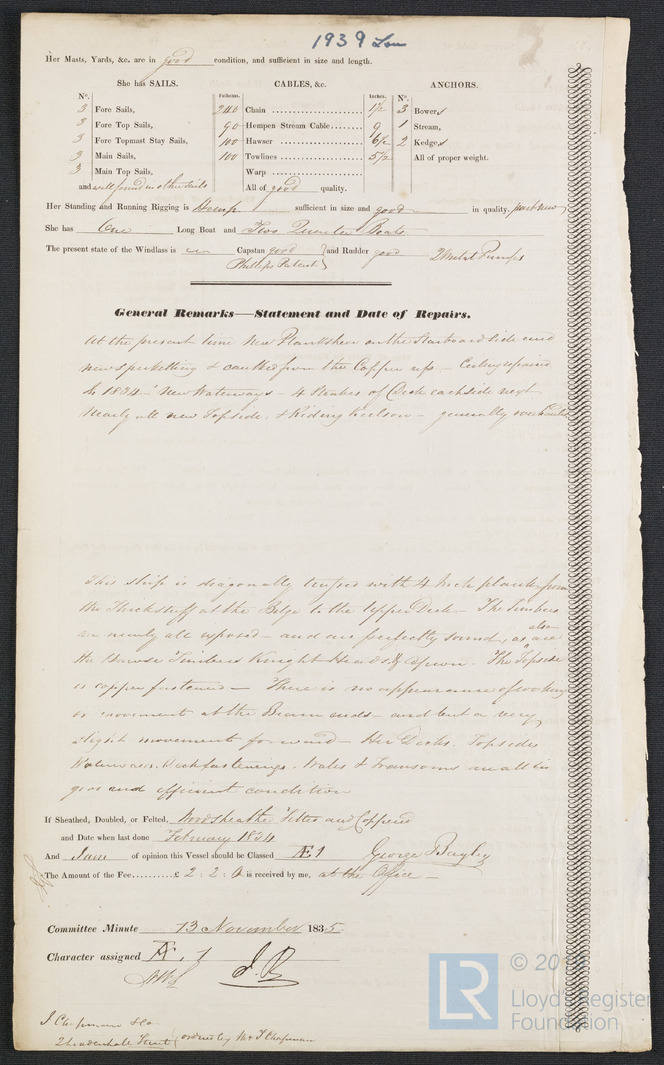 1939 Lon
Her Masts, Yards, &c. are in good condition, and sufficient in size and length.
She has SAILS. CABLES, &c. ANCHORS.
N°. Fathoms. Inches. N°.
3 Fore Sails, 240 Chain 1½ 3 Bowers
3 Fore Top Sails, 90 Hempen Stream Cable 9 1 Stream,
3 Fore Topmast Stay Sails, 100 Hawser 6½ 2 Kedges
3 Main Sails, 100 Towlines 5½ All of proper weight.
3 Main Top Sails, Warp
and well found in other sails All of good quality.
Her Standing and Running Rigging is Hemp sufficient in size and good in quality, part new
She has One Long Boat and Two Quarter Boats
The present state of the Windlass is Capstan good and Rudder good 2 Metal Pumps
Phillips Patent
General Remarks—Statement and Date of Repairs.
At the present time New Planksheer on the Starboard side and
new spirketting & caulked from the Copper up – Ceiling repaired
In 1834 – New Waterways – 4 Strakes of Deck each side next
Nearly all new Topside. & Riding Keelson – generally overhauled
This ship is diagonally trussed with 4 Inch plank from
the Thickstuff at the Bilge to the Upper Deck – The Timbers
are nearly all exposed – and are perfectly sound, as also are
the Hawse Timbers Knight Heads & Apron. The Topside
is copper fastened – There is no appearance of working
or movement at the Beam ends – and but a very
slight movement forward – Her Decks. Topsides
Waterways. Deck fastenings. Wales & Transoms are all in
good and efficient condition
If Sheathed, Doubled, or Felted, Woodsheathed Felted and Coppered
and Date when last done February 1834
And I am of opinion this Vessel should be Classed Æ 1 George Bayley
The Amount of the Fee £ 2 : 2 : 0 is received by me, at the Office –
Committee Minute 13 November 1835
Character assigned Æ . 1
J. Chapman & Co
2 Leadenhall Street (ordered by Mr T Chapman
LR
© 20
Lloyd's Register
Foundation